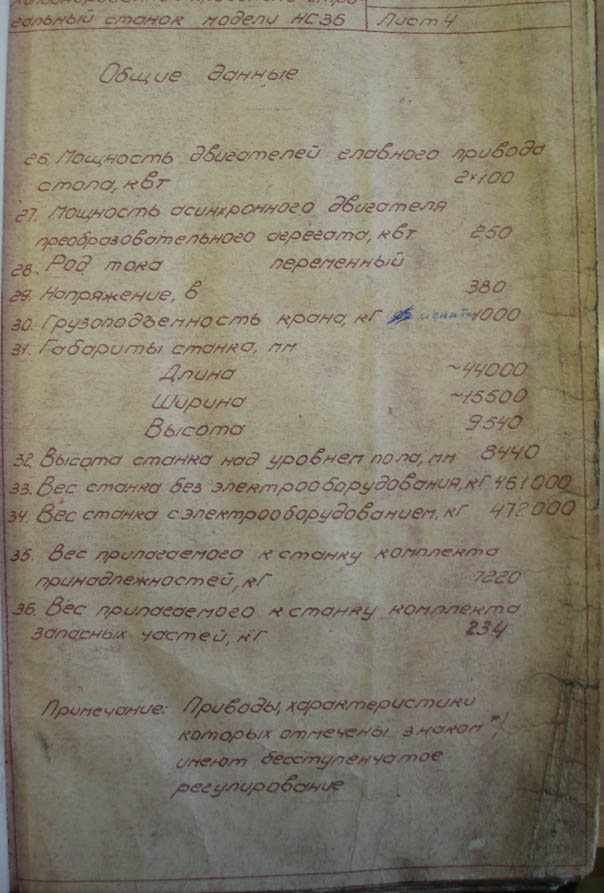 гальный станок модели НС36 Лист 4
Общие данные
26. Мощность двигателей главного привода
стола, квт 2×100
27. Мощность асинхронного двигателя
преобразовательного агрегата, квт 250
28. Род тока переменный
29. Напряжение, в 380
30. Грузоподъемность крана, кГ 1000
31. Габариты станка, мм
Длина ~44000
Ширина ~15500
Высота 9540
32. Высота станка над уровнем пола, мм 8440
33. Вес станка без электрооборудования, кГ 461000
34. Вес станка с электрооборудованием, кГ 472000
35. Вес прилагаемого к станку комплекта
принадлежностей, кГ 7220
36. Вес прилагаемого к станку комплекта
запасных частей, кГ 234
Примечание: Приводы, характеристики
которых отмечены знаком *)
имеют бесступенчатое
регулирование